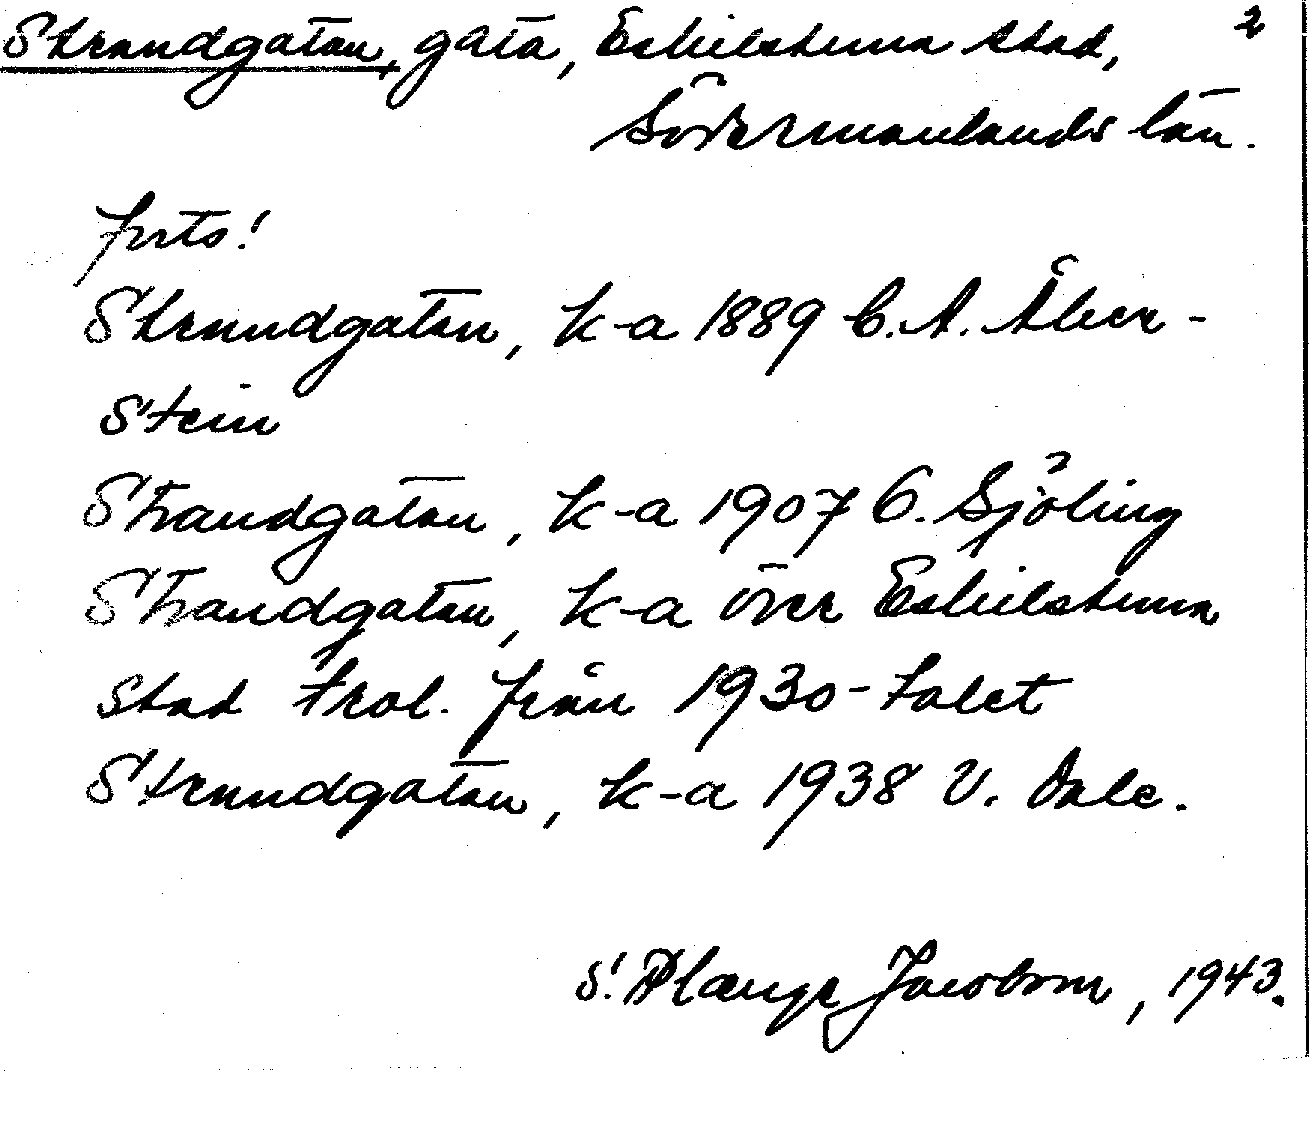 Strandgatan, gata, Eskilstuna stad, 2
Södermanlands län.
forts!
Strandgatan, k-a 1889 C. A. Åker-
stein
Strandgatan, k-a 1907 C. Sjöling
Strandgatan, k-a över Eskilstuna
stad trol. från 1930-talet
Strandgatan, k-a 1938 V. Dale.
S. Jacobson, 1943.